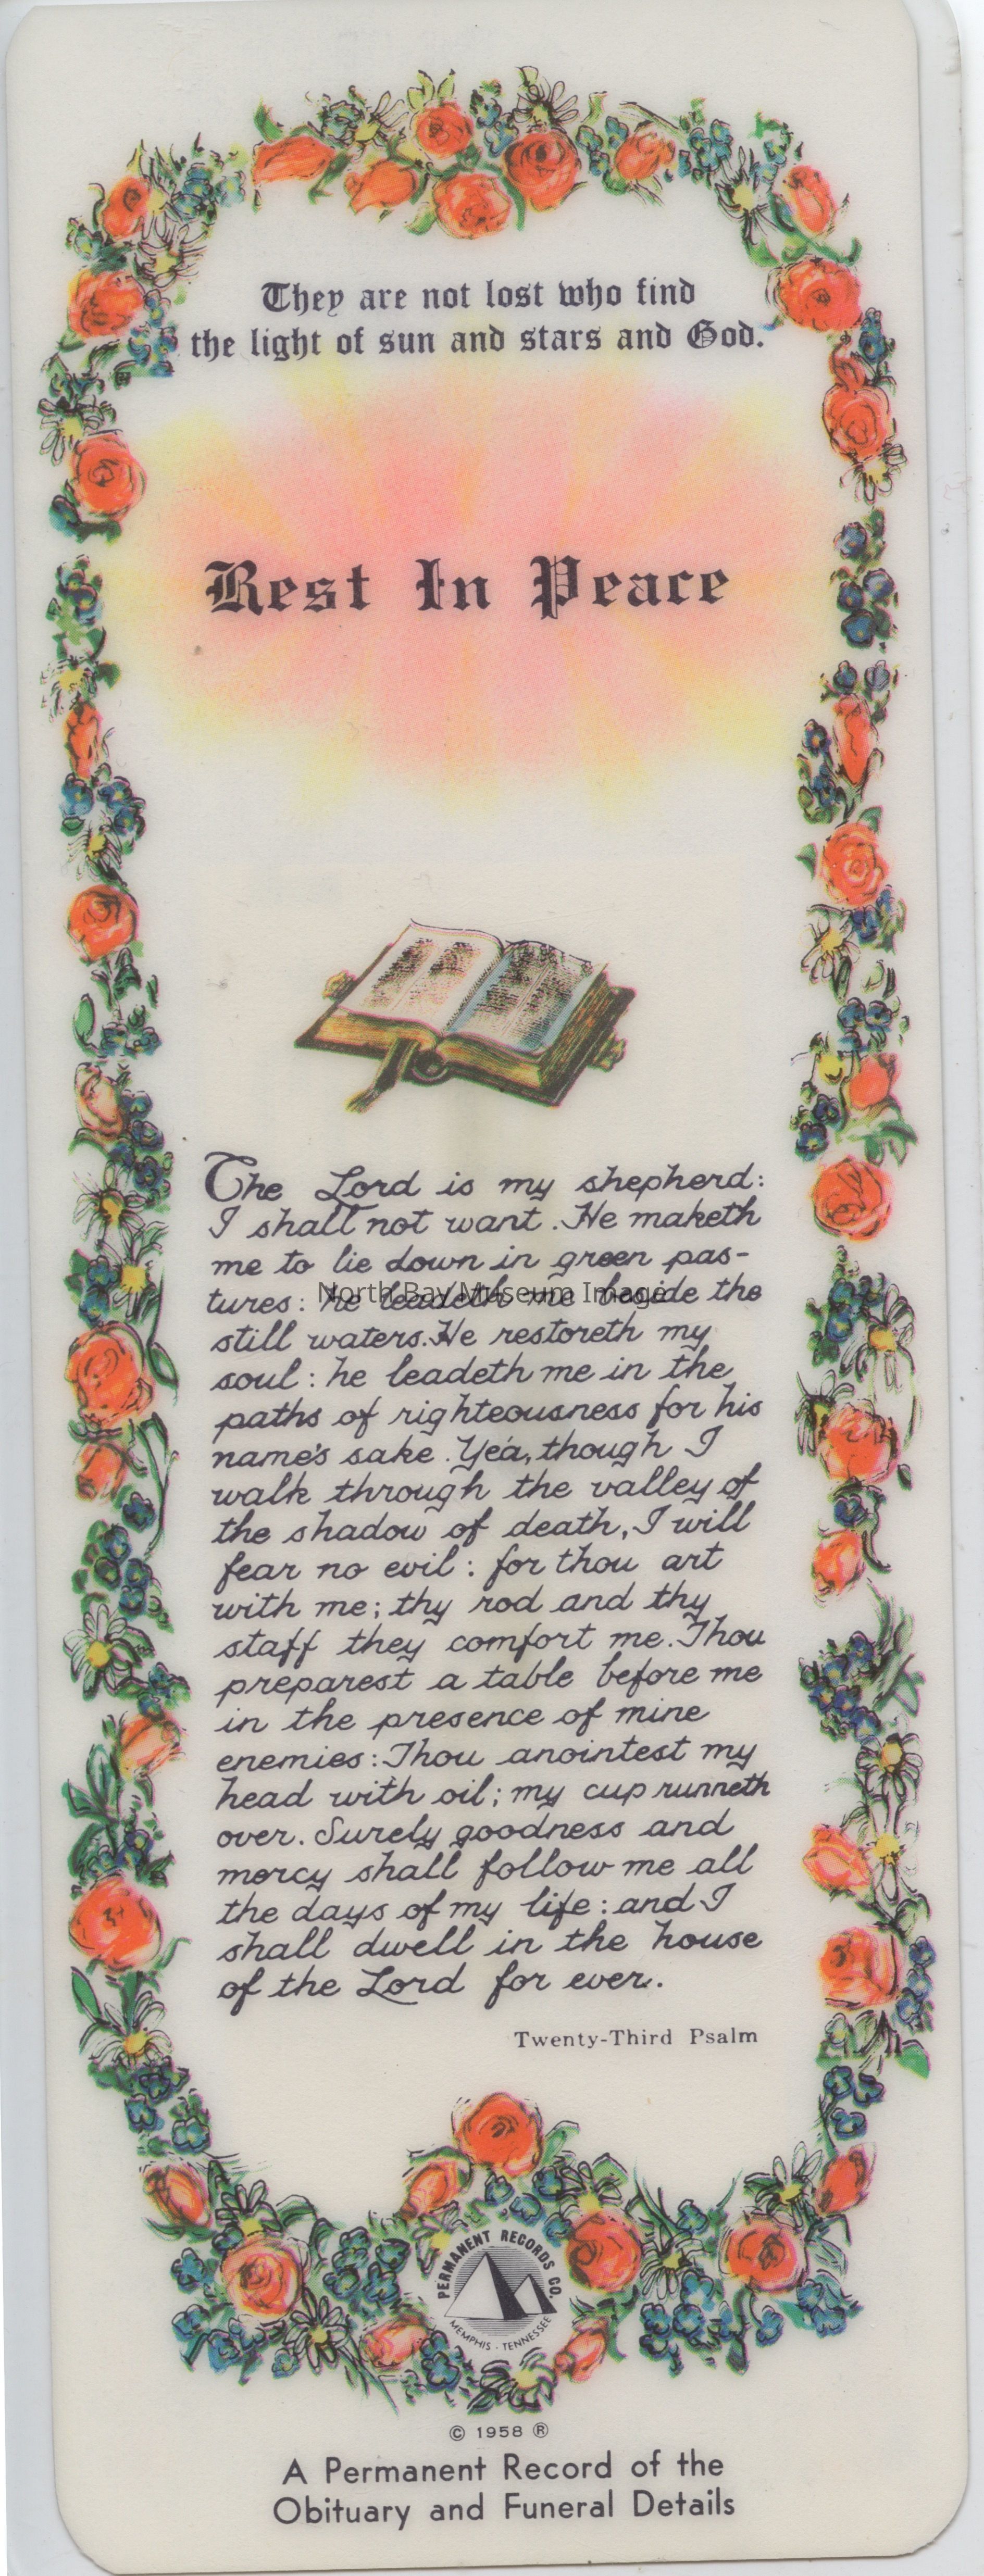 They are not lost who find
the light of sun and stars and God.
Rest In Peace
The Lord is my shepherd:
I shall not want. He maketh
me to lie down in green pas-
tures: he leadeth me beside the
North Bay Museum Image
still waters. He restoreth my
soul: he leadeth me in the
paths of righteousness for his
name's sake. Yea, though I
walk through the valley of
the shadow of death, I will
fear no evil: for thou art
with me; thy rod and thy
staff they comfort me. Thou
preparest a table before me
in the presence of mine
enemies: Thou anointest my
head with oil; my cup runneth
over. Surely goodness and
mercy shall follow me all
the days of my life: and I
shall dwell in the house
of the Lord for ever.
Twenty-Third Psalm
PERMANENT RECORDS CO.
MEMPHIS - TENNESSEE
© 1958 ®
A Permanent Record of the
Obituary and Funeral Details